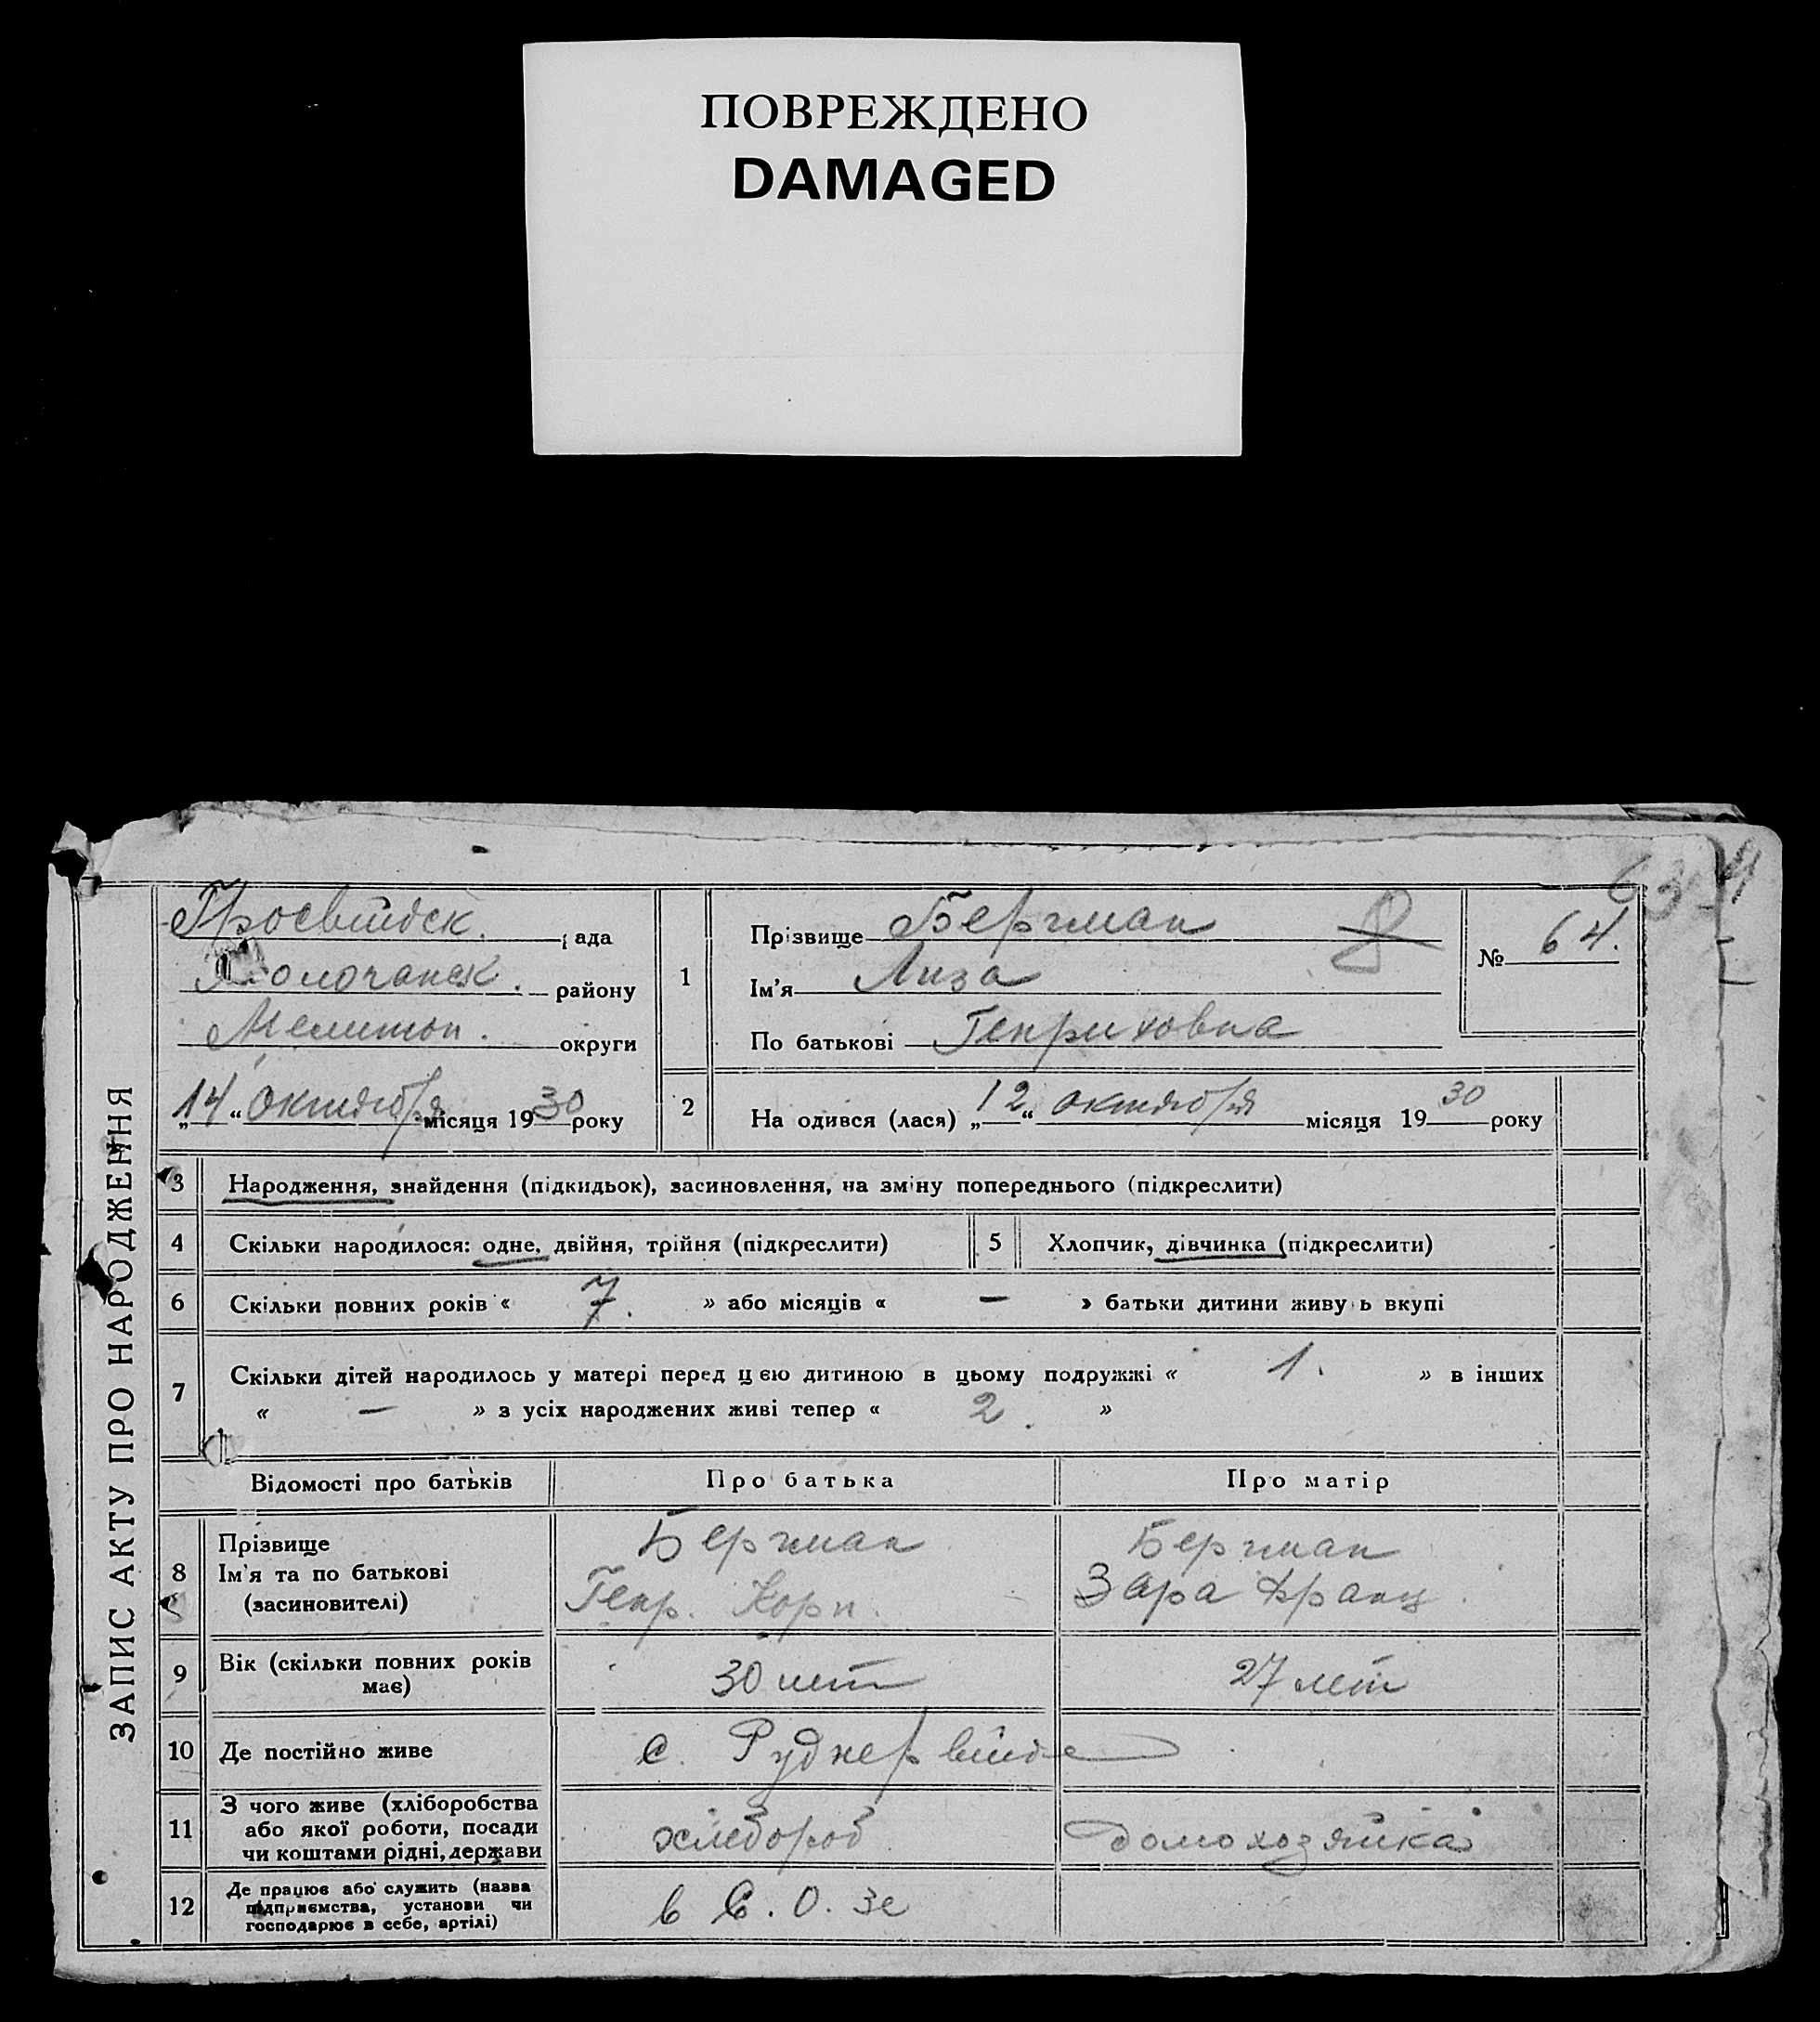 ПОВРЕЖДЕНО
DAMAGED
63
ЗАПИС АКТУ ПРО НАРОДЖЕННЯ
Гросвейдек. ада
Молочанск. району
Мелитоп. округи
„14“ октября місяця 1930 року
1
Прізвище Бергман
Ім'я Лиза
По батькові Генриховна
№ 64.
2 На одився (лася) „12“ октября місяця 1930 року
3 Народження, знайдення (підкидьок), засиновлення, на зміну попереднього (підкреслити)
4 Скільки народилося: одне, двійня, трійня (підкреслити) 5 Хлопчик, дівчинка (підкреслити)
6 Скільки повних років « 7. » або місяців « — » батьки дитини живу ь вкупі
7 Скільки дітей народилось у матері перед цєю дитиною в цьому подружжі « 1. » в інших
« — » з усіх народжених живі тепер « 2. »
Відомості про батьків Про батька Про матір
8 Прізвище Бергман Бергман
Ім'я та по батькові Генр. Корн. Зара Франц.
(засиновителі)
9 Вік (скільки повних років має) 30 лет 27 лет
10 Де постійно живе с. Руднервейде
11 З чого живе (хліборобства
або якої роботи, посади хлебороб домохозяйка
чи коштами рідні, держави
12 Де працює або служить (назва
підприємства, установи чи в С. О. Зе
господарює в себе, артілі)